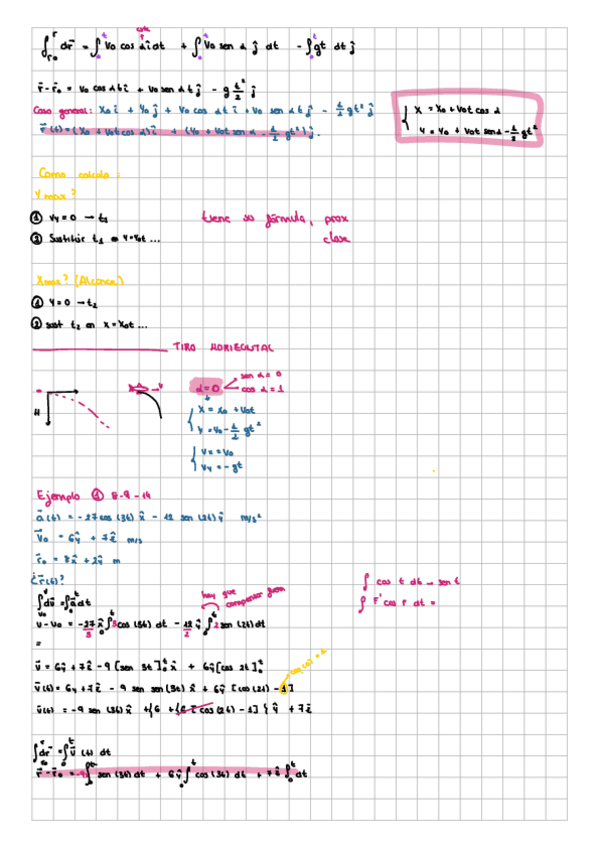 cte
∫ᵣ₀ʳ dr̄ = ∫₀ᵗ v₀ cos α î dt + ∫₀ᵗ v₀ sen α ĵ dt - ∫gt dt ĵ
r̄ - r̄₀ = v₀ cos α t î + v₀ sen α t ĵ - g t²/2 ĵ
Caso general: x₀ î + y₀ ĵ + v₀ cos α t î + v₀ sen α t ĵ - 1/2 gt² ĵ
r̄(t) = (x₀ + v₀t cos α) î + (y₀ + v₀t sen α - 1/2 gt²) ĵ.
{ x = x₀ + v₀t cos α
y = y₀ + v₀t sen α - 1/2 gt²
Como calculo:
Y max?
① Vy = 0 → t₁
② Sustituir t₁ en y = y₀t ...
tiene su fórmula, prox
clase
Xmax? (Alcance)
① Y = 0 → t₂
② sust t₂ en x = x₀t ...
TIRO HORIZONTAL
H
α = 0
sen α = 0
cos α = 1
{ x = x₀ + v₀t
y = y₀ - 1/2 gt²
{ Vx = V₀
Vy = -gt
Ejemplo ① 8-9-14
ā(t) = -27cos(3t) x̂ - 12 sen(2t) ŷ m/s²
v̄₀ = 6ŷ + 7ẑ m/s
r̄₀ = 8x̂ + 2ŷ m
¿r̄(t)?
∫ᵥ₀ᵛ dv̄ = ∫₀ᵗ ā dt
hay que compensar fuera
v - v₀ = -27/3 x̂ ∫₀ᵗ 3cos(3t) dt - 12/2 ŷ ∫₀ᵗ 2sen(2t) dt
=
∫ cos t dt → sen t
∫ F' cos F dt =
v̄ = 6ŷ + 7ẑ - 9 [sen 3t]₀ᵗ x̂ + 6ŷ [cos 2t]₀ᵗ
cos(0) = 1
v̄(t) = 6y + 7ẑ - 9 sen sen(3t) x̂ + 6ŷ [cos(2t) - 1]
v̄(t) = -9 sen(3t) x̂ + {6 + {6 [cos(2t) - 1] } ŷ + 7ẑ
∫dr̄ = ∫₀ᵗ v̄(t) dt
r̄ - r̄₀ = -9 ∫₀ᵗ sen(3t) dt + 6ŷ ∫₀ᵗ cos(2t) dt + 7ẑ ∫₀ᵗ dt